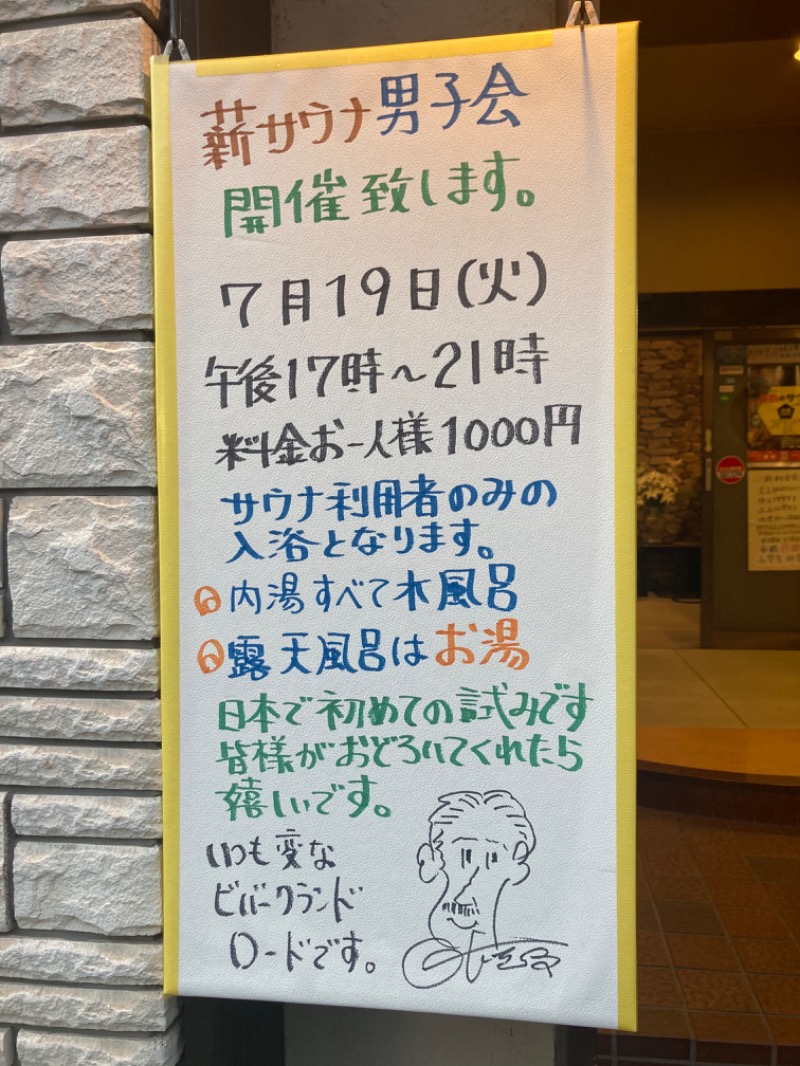 薪サウナ男子会
開催致します。
7月19日(火)
午後17時～21時
料金お一人様1000円
サウナ利用者のみの
入浴となります。
内湯すべて水風呂
露天風呂はお湯
日本で初めての試みです
皆様がおどろいてくれたら
嬉しいです。
いつも変な
ビバークランド
ロードです。